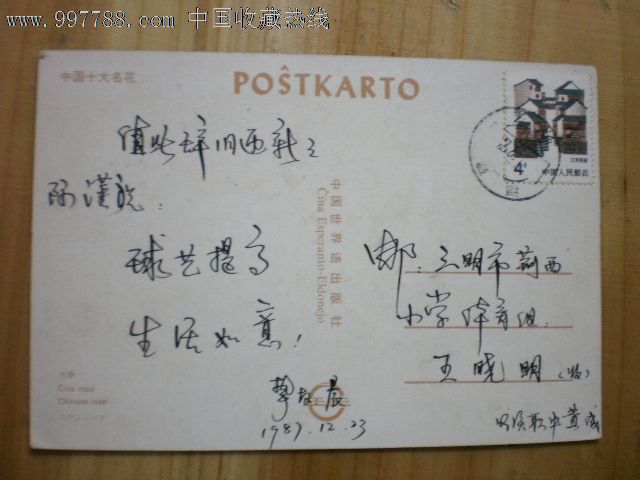 www.997788.com 中国收藏热线
中国十大名花
POŜTKARTO
值此辞旧迎新之
际谨祝:
球艺提高
生活如意!
1987.12.23
中国世界语出版社
Ĉina Esperanto-Eldonejo
邮:三明市荆西
小学体育组:
王晓明(收)
4分
中国人民邮政
月季
Ĉina rozo
Chinese rose